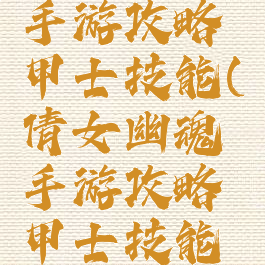 手游攻略
甲士技能(
倩女幽魂
手游攻略
甲士技能